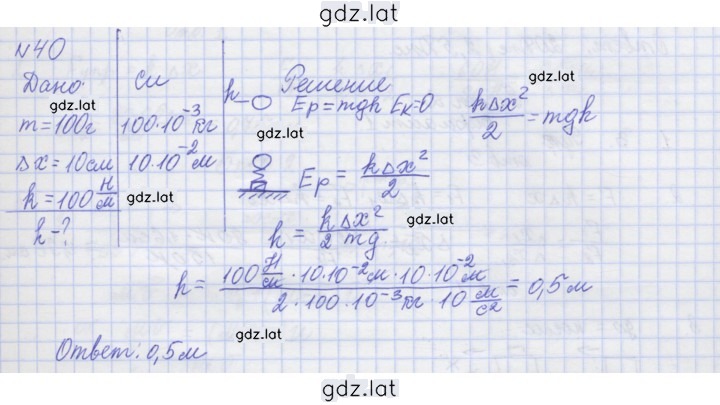 gdz.lat
№40
Дано
m = 100г
Δx = 10см
k = 100 Н/м
h - ?
gdz.lat
си
100·10⁻³кг
10·10⁻²м
gdz.lat
Решение
h
Eр = mgh Eк = 0
gdz.lat
kΔx²/2 = mgh
gdz.lat
Eр = kΔx²/2
h = kΔx²/2mg
gdz.lat
h = 100 Н/м · 10·10⁻²м · 10·10⁻²м / 2·100·10⁻³кг · 10 м/с² = 0,5м
gdz.lat
Ответ: 0,5м
gdz.lat